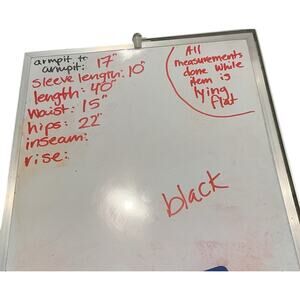 armpit to
armpit: 17"
sleeve length: 10"
length: 40"
waist: 15"
hips: 22"
inseam:
rise:
All
measurements
done while
item is
lying
flat
black